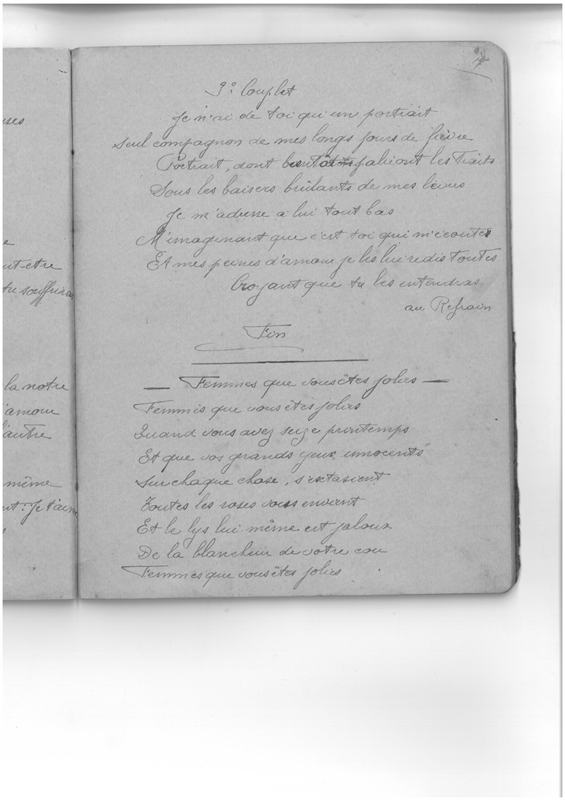 uses
e
ut-etre
tre souffriras
la notre
'amour
'autre
même
nt: Je t'aim
3e Couplet
Je n'ai de toi qu'un portrait
Seul compagnon de mes longs jours de fièvre
Portrait, dont bientôt paliront les traits
Sous les baisers brûlants de mes lèvres
Je m'adresse a lui tout bas
M'imaginant que c'est toi qui m'écoutes
Et mes peines d'amour je les lui redis toutes
Croyant que tu les entendras
au Refrain
Fin
— Femmes que vous êtes jolies —
Femmes que vous êtes jolies
Quand vous avez seize printemps
Et que vos grands yeux innocents
Sur chaque chose, s'extasient
Toutes les roses vous envient
Et le lys lui même est jaloux
De la blancheur de votre cou
Femmes que vous êtes jolies